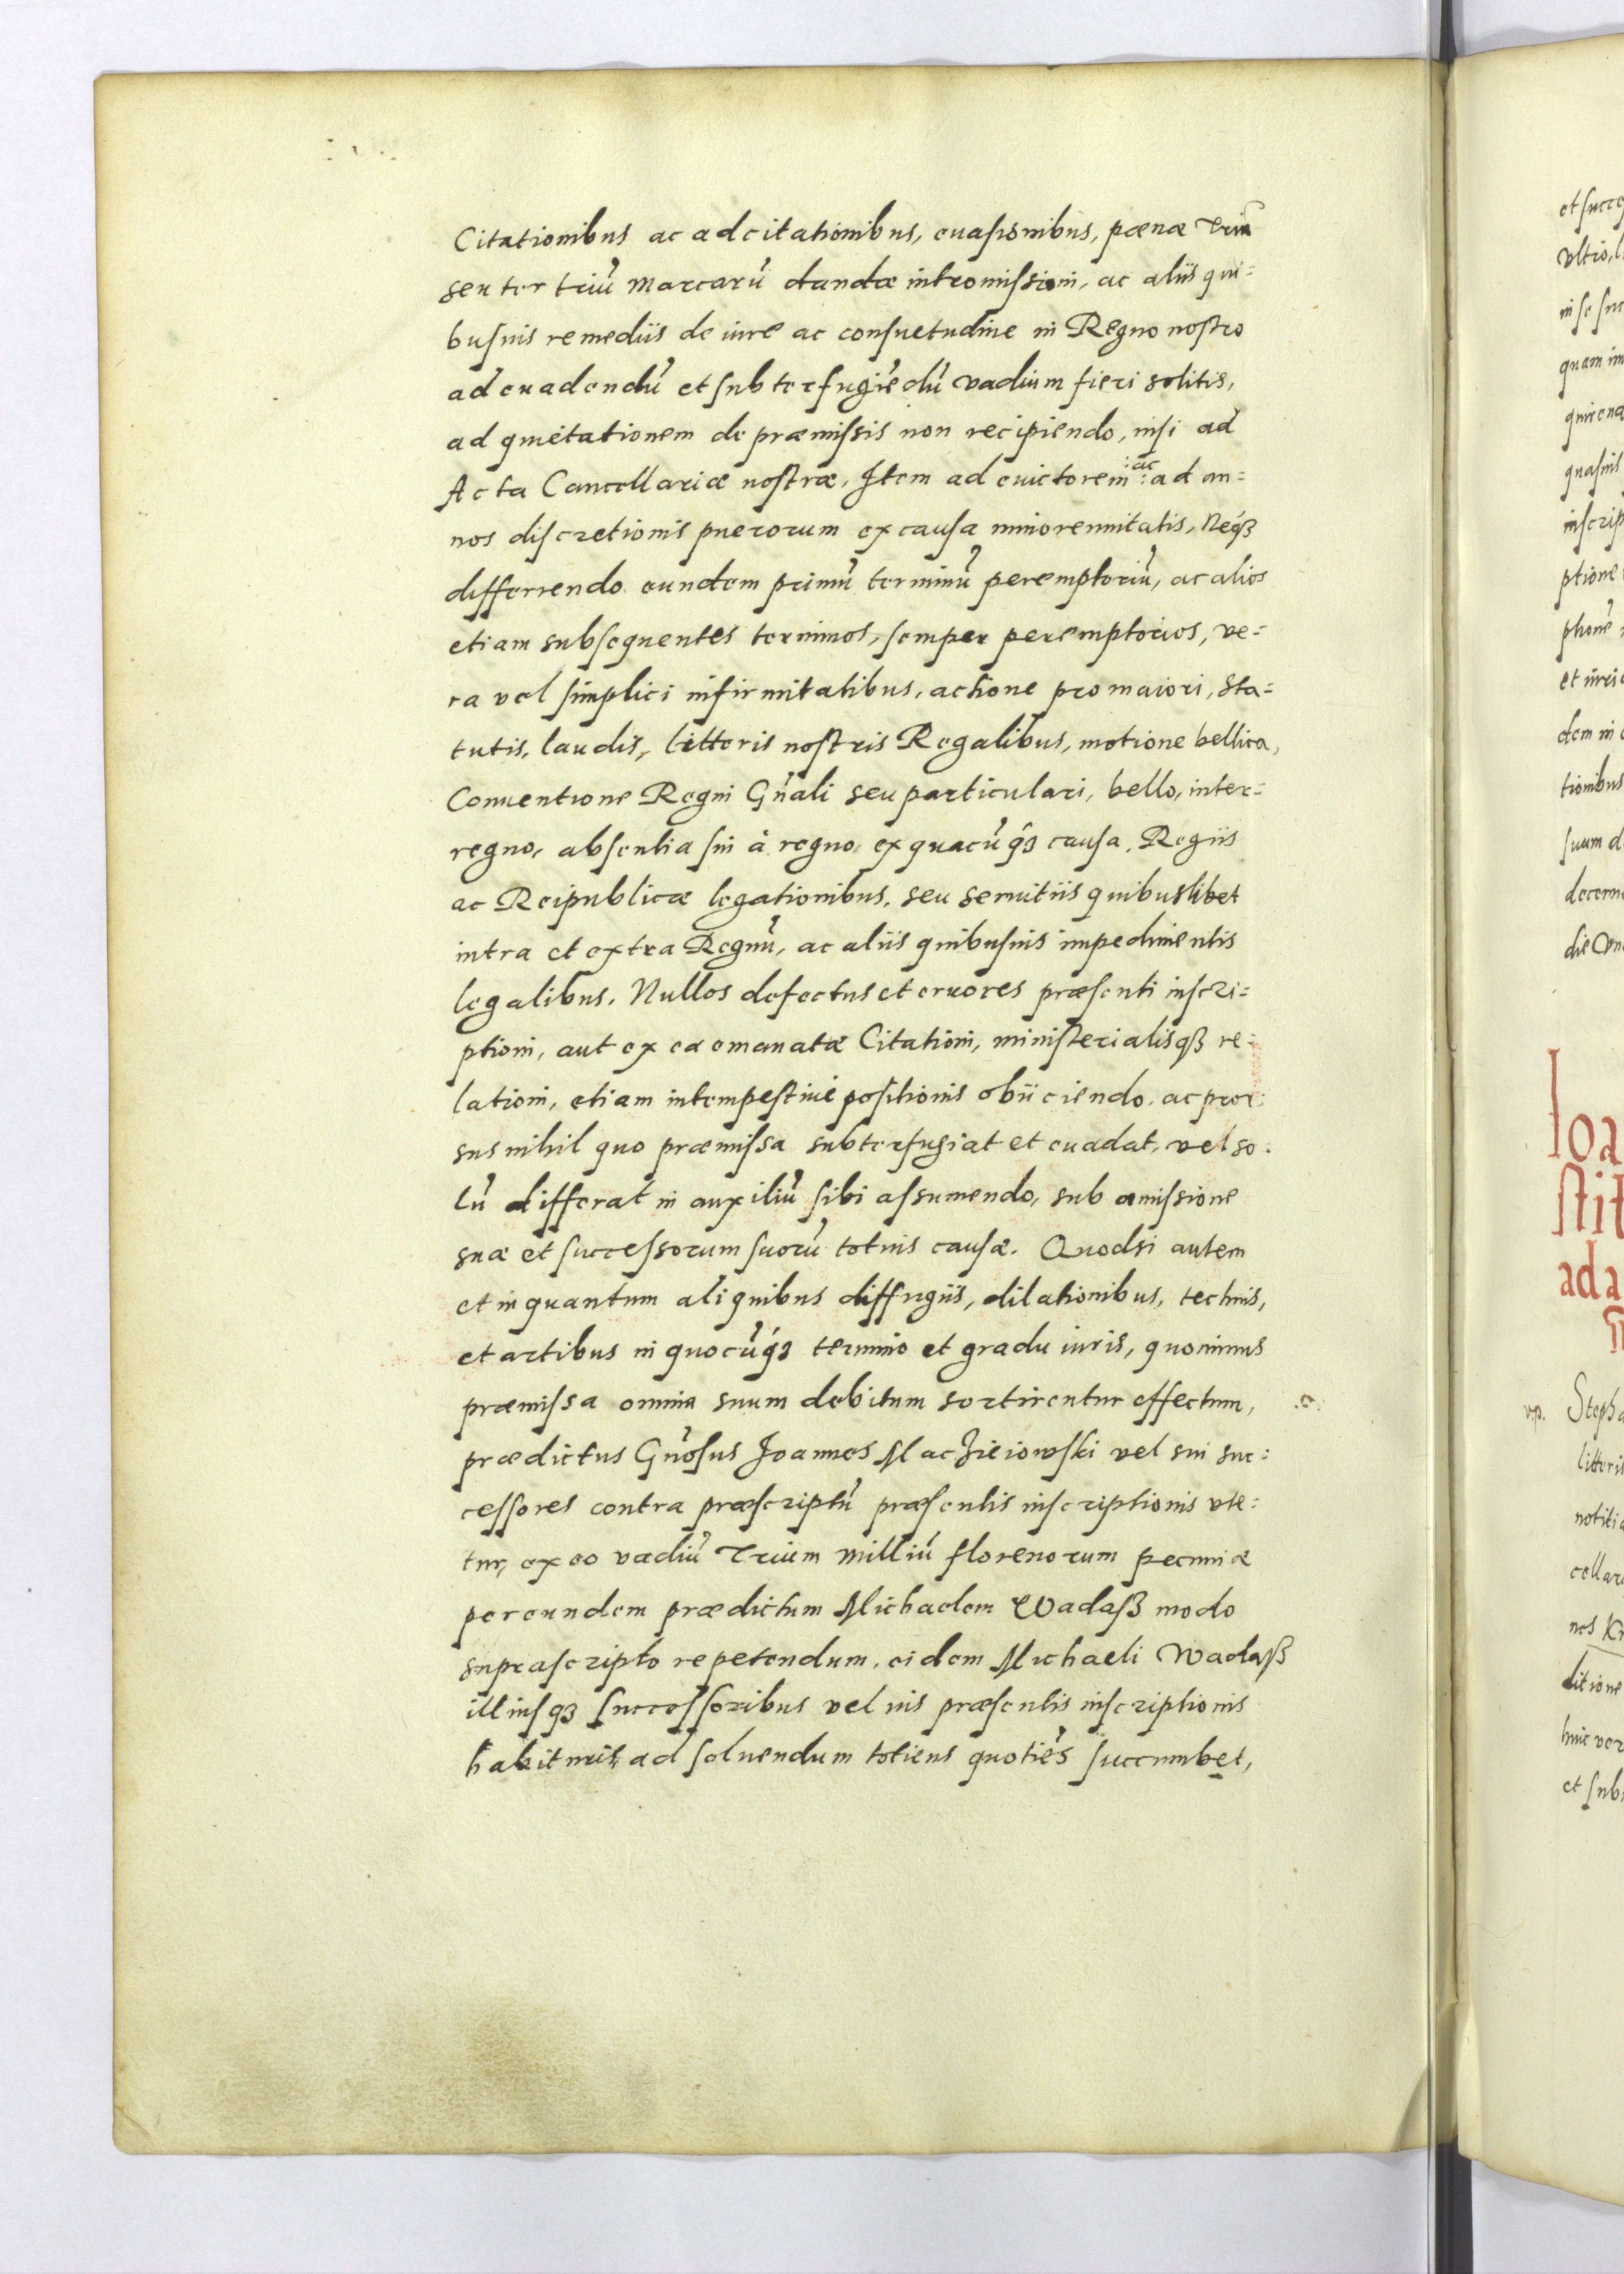 Citationibus ac adcitationibus, euasionibus, pœnæ Triũ
seu ter triũ marcarũ dandæ intromissioni, ac aliis qui=
busuis remediis de iure ac consuetudine in Regno nostro
ad euadendũ et subterfugiẽdũ vadium fieri solitis,
ad quietationem de præmissis non recipiendo, nisi ad
Acta Cancellariæ nostræ. Item ad euictorem :ac: ad an=
nos discretionis puerorum ex causa minorennitatis, Neqꝫ
differrendo eundem primũ terminũ peremptoriũ, ac alios
etiam subsequentes terminos, semper peremptorios, ve=
ra vel simplici infirmitatibus, actione pro maiori, sta=
tutis, laudis, litteris nostris Regalibus, motione bellica,
Conuentione Regni Gñali seu particulari, bello, inter=
regno, absentia sui à regno ex quacũqꝫ causa. Regiis
ac Reipublicæ legationibus, seu seruitiis quibuslibet
intra et extra Regnũ, ac aliis quibusuis impedimentis
legalibus. Nullos defectus et errores præsenti inscri=
ptioni, aut ex ea emanatæ Citationi, ministerialisqꝫ re=
lationi, etiam intempestiuè positionis obiiciendo, ac pror=
sus nihil quo præmissa subterfugiat et euadat, vel so=
lũ differat in auxiliũ sibi assumendo, sub amissione
suæ et successorum suorũ totius causæ. Quodsi autem
et in quantum aliquibus diffugiis, dilationibus, technis,
et artibus in quocũqꝫ termino et gradu iuris, quominus
præmissa omnia suum debitum sortirentur effectum,
prædictus Gñosus Joannes Macʒieiowski vel sui suc=
cessores contra præscriptũ præsentis inscriptionis vte=
tur, ex eo vadiũ Trium milliũ florenorum pecuniæ
per eundem prædictum Michaelem Wadaß modo
suprascripto repetendum, eidem Michaeli Wadaß
illiusqꝫ successoribus vel ius præsentis inscriptionis
habituris, ad soluendum totiens quotiès succumbet,
Ioa
stit
ada
vp.
Steph
litteris
notiti
cellar
nos
ditione
huic
et sub